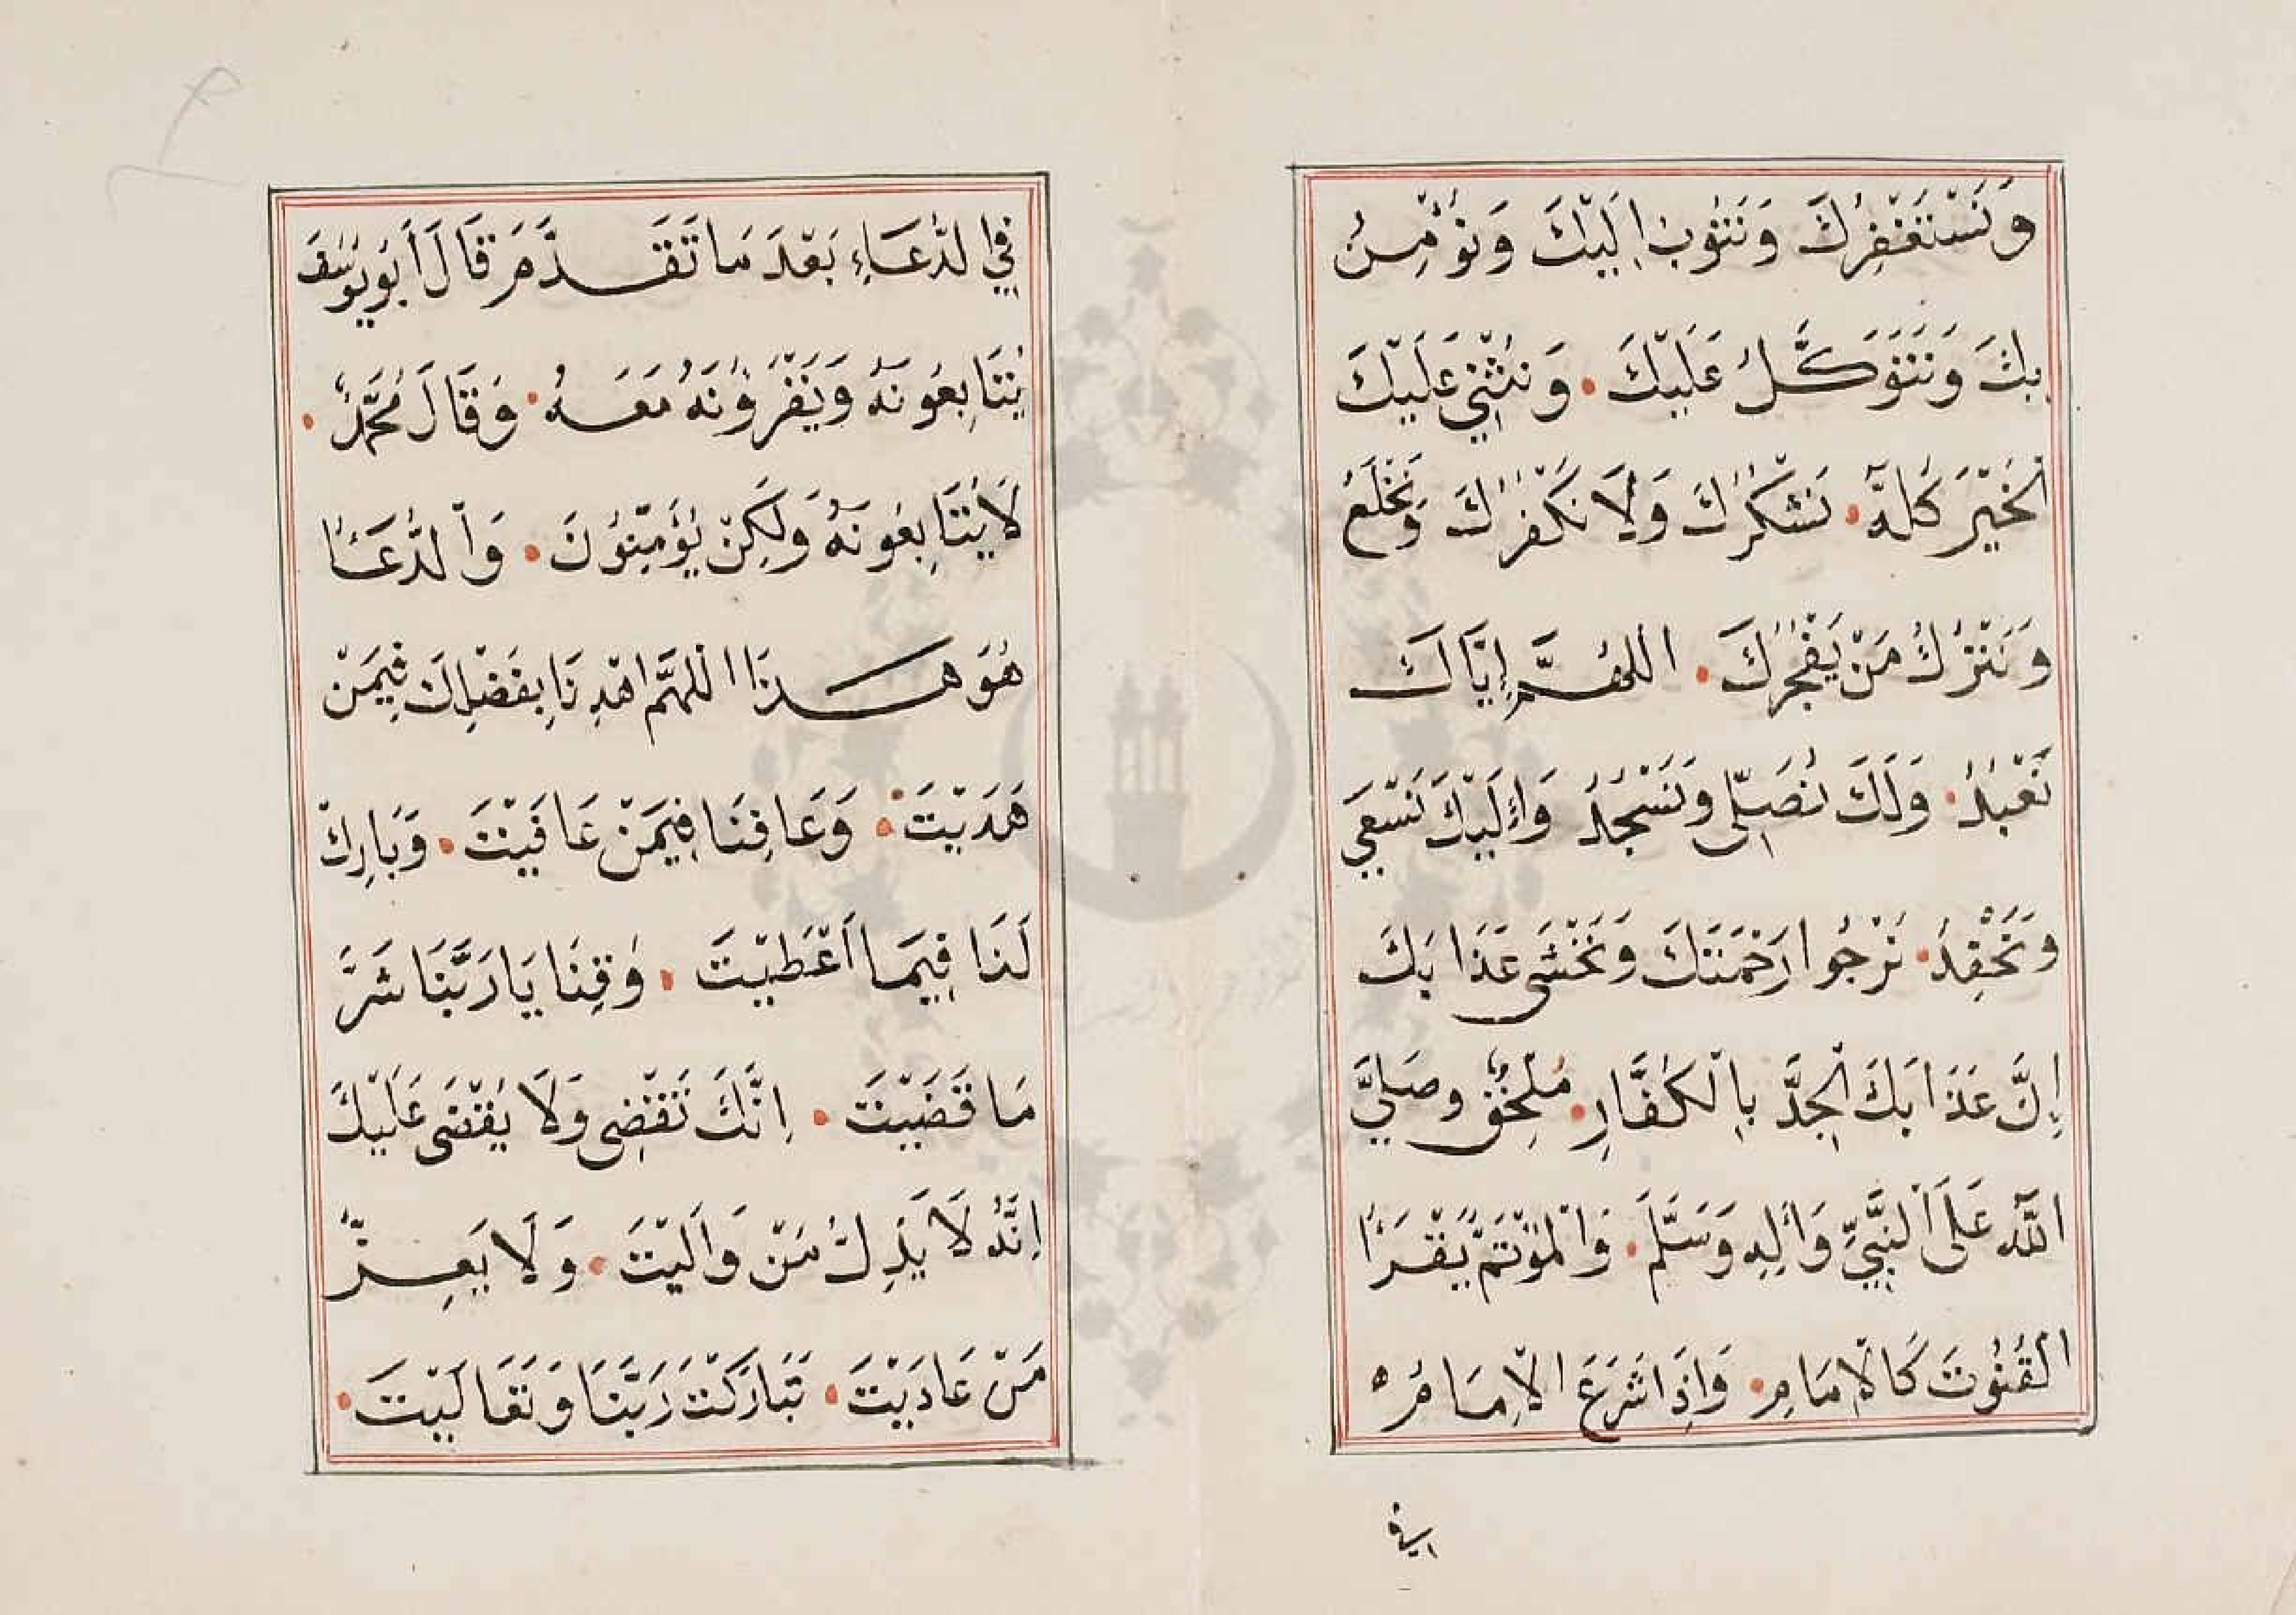 وَنَسْتَغْفِرُكَ وَنَتُوبُ اِلَيْكَ وَنُؤْمِنُ
بِكَ وَنَتَوَكَّلُ عَلَيْكَ • وَنُثْنِي عَلَيْكَ
الْخَيْرَ كُلَّهُ • نَشْكُرُكَ وَلَا نَكْفُرُكَ وَنَخْلَعُ
وَنَتْرُكُ مَنْ يَفْجُرُكَ • اَللّٰهُمَّ إِيَّاكَ
نَعْبُدُ • وَلَكَ نُصَلِّى وَنَسْجُدُ وَاِلَيْكَ نَسْعَي
وَنَحْفِدُ • نَرْجُوا رَحْمَتَكَ وَنَخْشَى عَذَابَكَ
إِنَّ عَذَابَكَ الْجِدَّ بِالْكُفَّارِ • مُلْحِقٌ وَصَلَّيَ
اللّٰهُ عَلَى النَّبِيِّ وَأٰلِهِ وَسَلَّمَ • وَالْمُؤْتَمُّ يَقْرَأُ
الْقُنُوتَ كَالْاِمَامِ • وَاِذَا شَرَعَ الْاِمَامُ ه
في الدُّعَاءِ بَعْدَ مَا تَقَدَّمَ قَالَ أَبُو يُوسُفَ
يُتَابِعُونَهُ وَيَقْرَؤُنَهُ مَعَهُ • وَقَالَ مُحَمَّدٌ •
لَا يُتَابِعُونَهُ وَلَكِنْ يُؤَمِّنُوُنَ • وَالدُّعَاُ
هُوَ هَذَا اَللّٰهُمَّ اهْدِنَا بِفَضْلِكَ فِيمَنْ
هَدَيْتَ • وَعَافِنَا فِيمَنْ عَافَيْتَ • وَبَارِكْ
لَنَا فِيمَا اَعْطَيْتَ • وَقِنَا يَا رَبَّنَا شَرَّ
مَا قَضَيْتَ • اِنَّكَ تَقْضِى وَلَا يُقْضَى عَلَيْكَ
اِنَّهُ لَا يَذِلُّ مَنْ وَالَيْتَ • وَلَا يَعِزُّ
مَنْ عَادَيْتَ • تَبَارَكْتَ رَبَّنَا وَتَعَالَيْتَ •